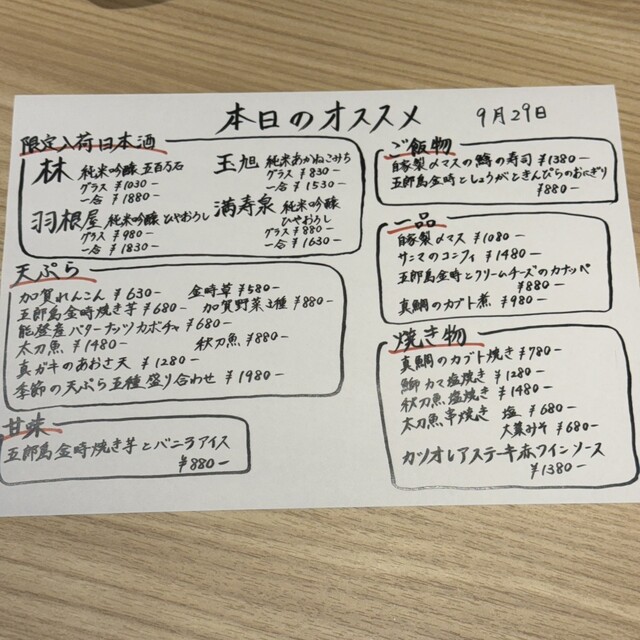 本日のオススメ 9月29日
限定入荷日本酒
林 純米吟醸 五百万石
グラス ¥1030-
一合 ¥1880-
玉旭 純米あかねこみち
グラス ¥830-
一合 ¥1530-
羽根屋 純米吟醸 ひやおろし
グラス ¥980-
一合 ¥1830-
満寿泉 純米吟醸
ひやおろし
グラス ¥880-
一合 ¥1630-
天ぷら
加賀れんこん ¥630- 金時草 ¥580-
五郎島金時焼き芋 ¥680- 加賀野菜3種 ¥880-
能登産バターナッツカボチャ ¥680-
太刀魚 ¥1480- 秋刀魚 ¥880-
真ガキのあおさ天 ¥1280-
季節の天ぷら五種盛り合わせ ¥1980-
甘味
五郎島金時焼き芋とバニラアイス
¥880-
ご飯物
自家製〆マスの鱒の寿司 ¥1380-
五郎島金時としょうがときんぴらのおにぎり
¥880-
一品
自家製〆マス ¥1080-
サンマのコンフィ ¥1480-
五郎島金時とクリームチーズのカナッペ
¥880-
真鯛のカブト煮 ¥980-
焼き物
真鯛のカブト焼き ¥780-
鰤カマ塩焼き ¥1280-
秋刀魚塩焼き ¥1480-
太刀魚串焼き 塩 ¥680-
大葉みそ ¥680-
カツオレアステーキ赤ワインソース
¥1380-